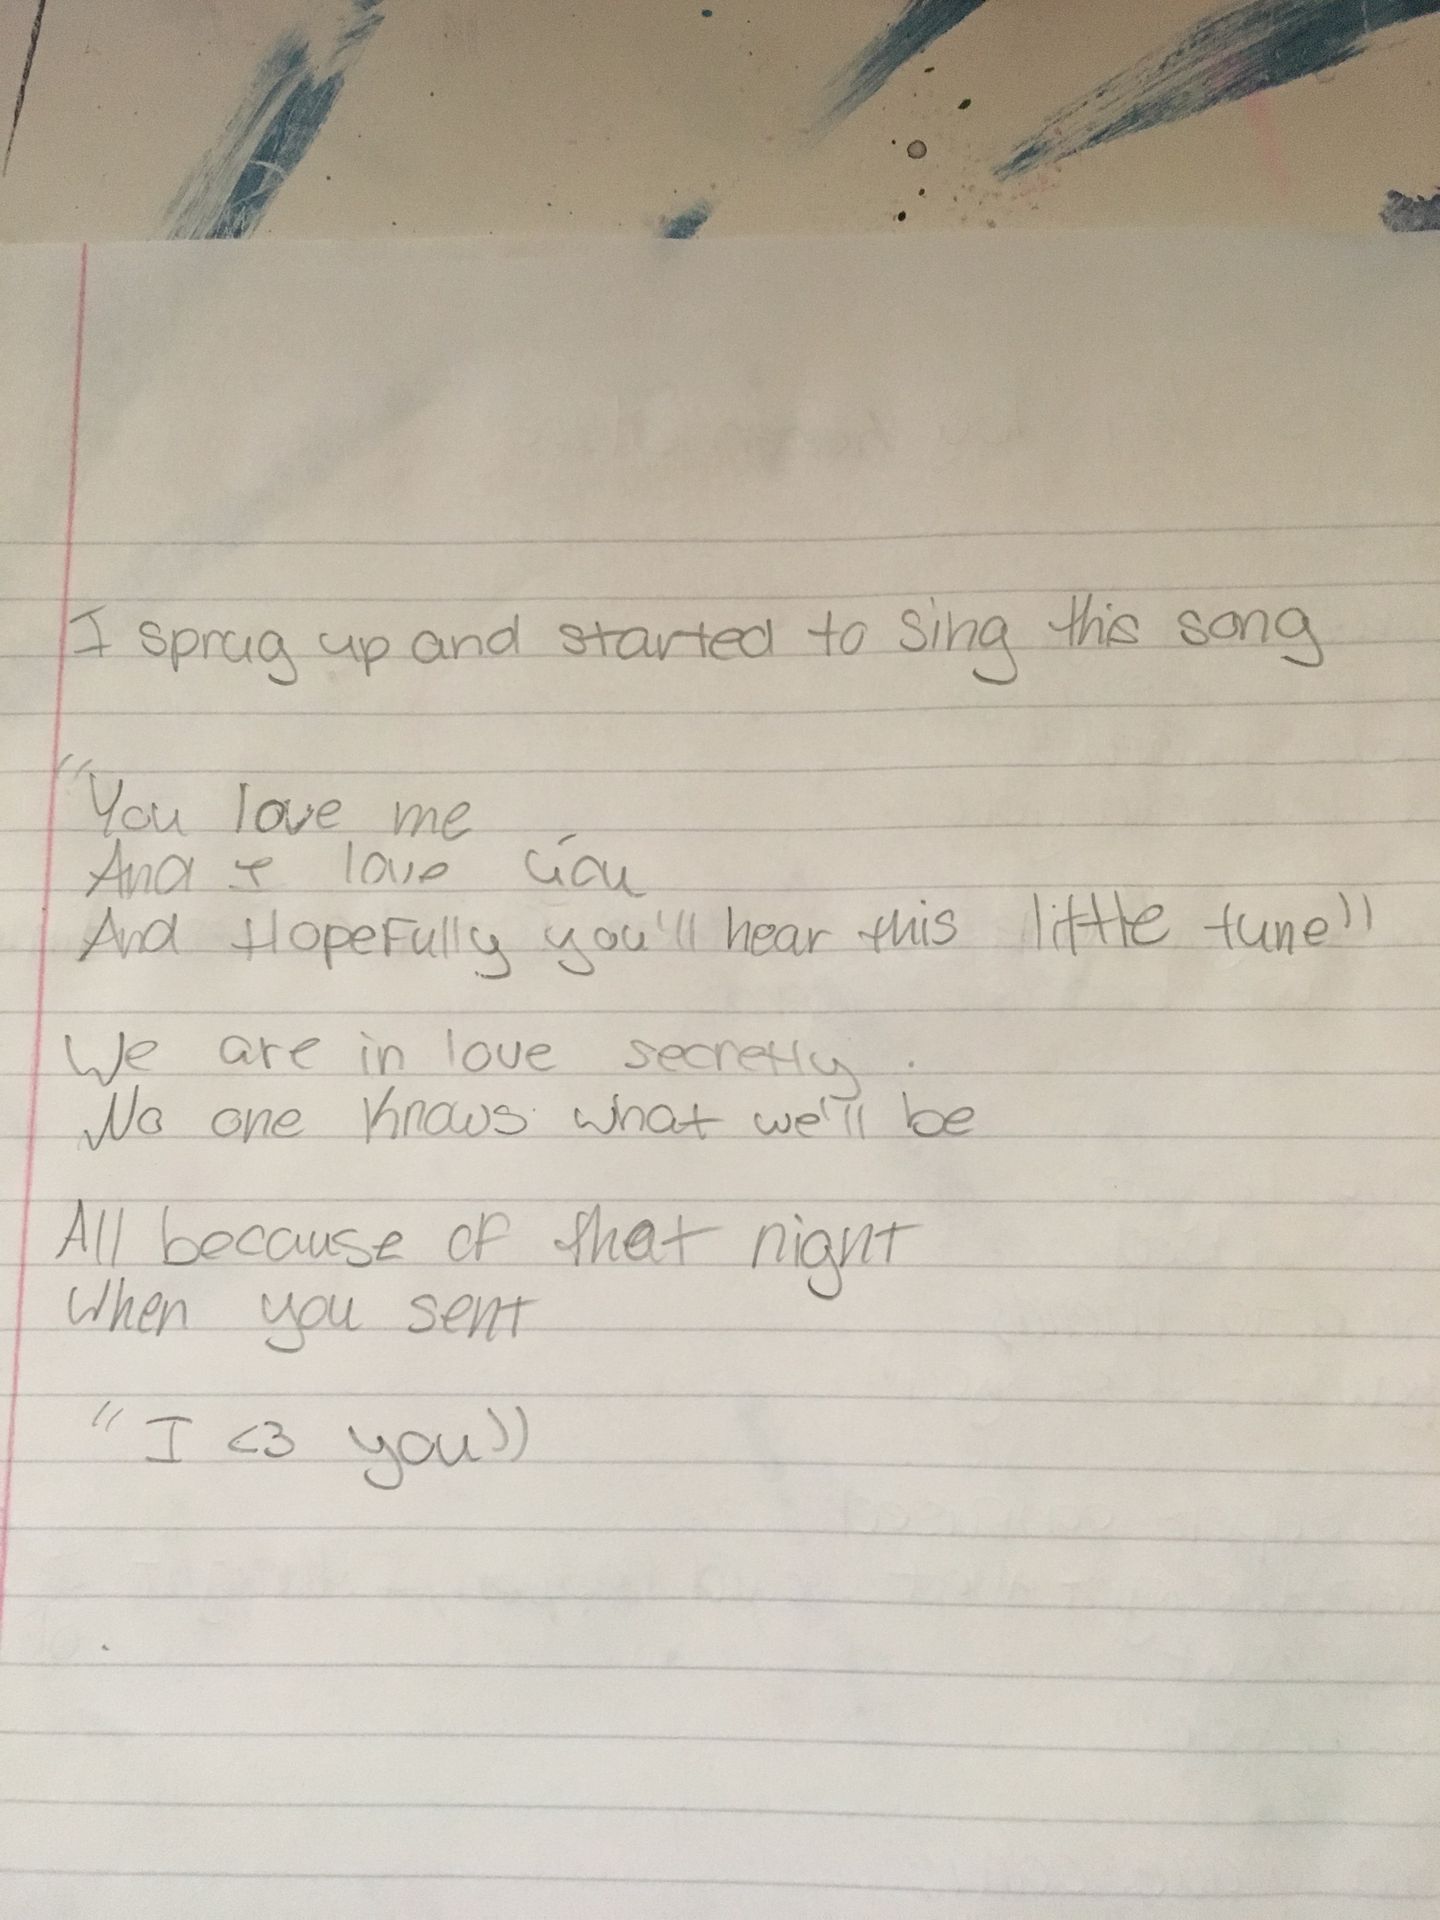 I sprug up and started to sing this song
"You love me
And I love you
And Hopefully you'll hear this little tune"
We are in love secretly.
No one knows what we'll be
All because of that night
When you sent
"I <3 you"